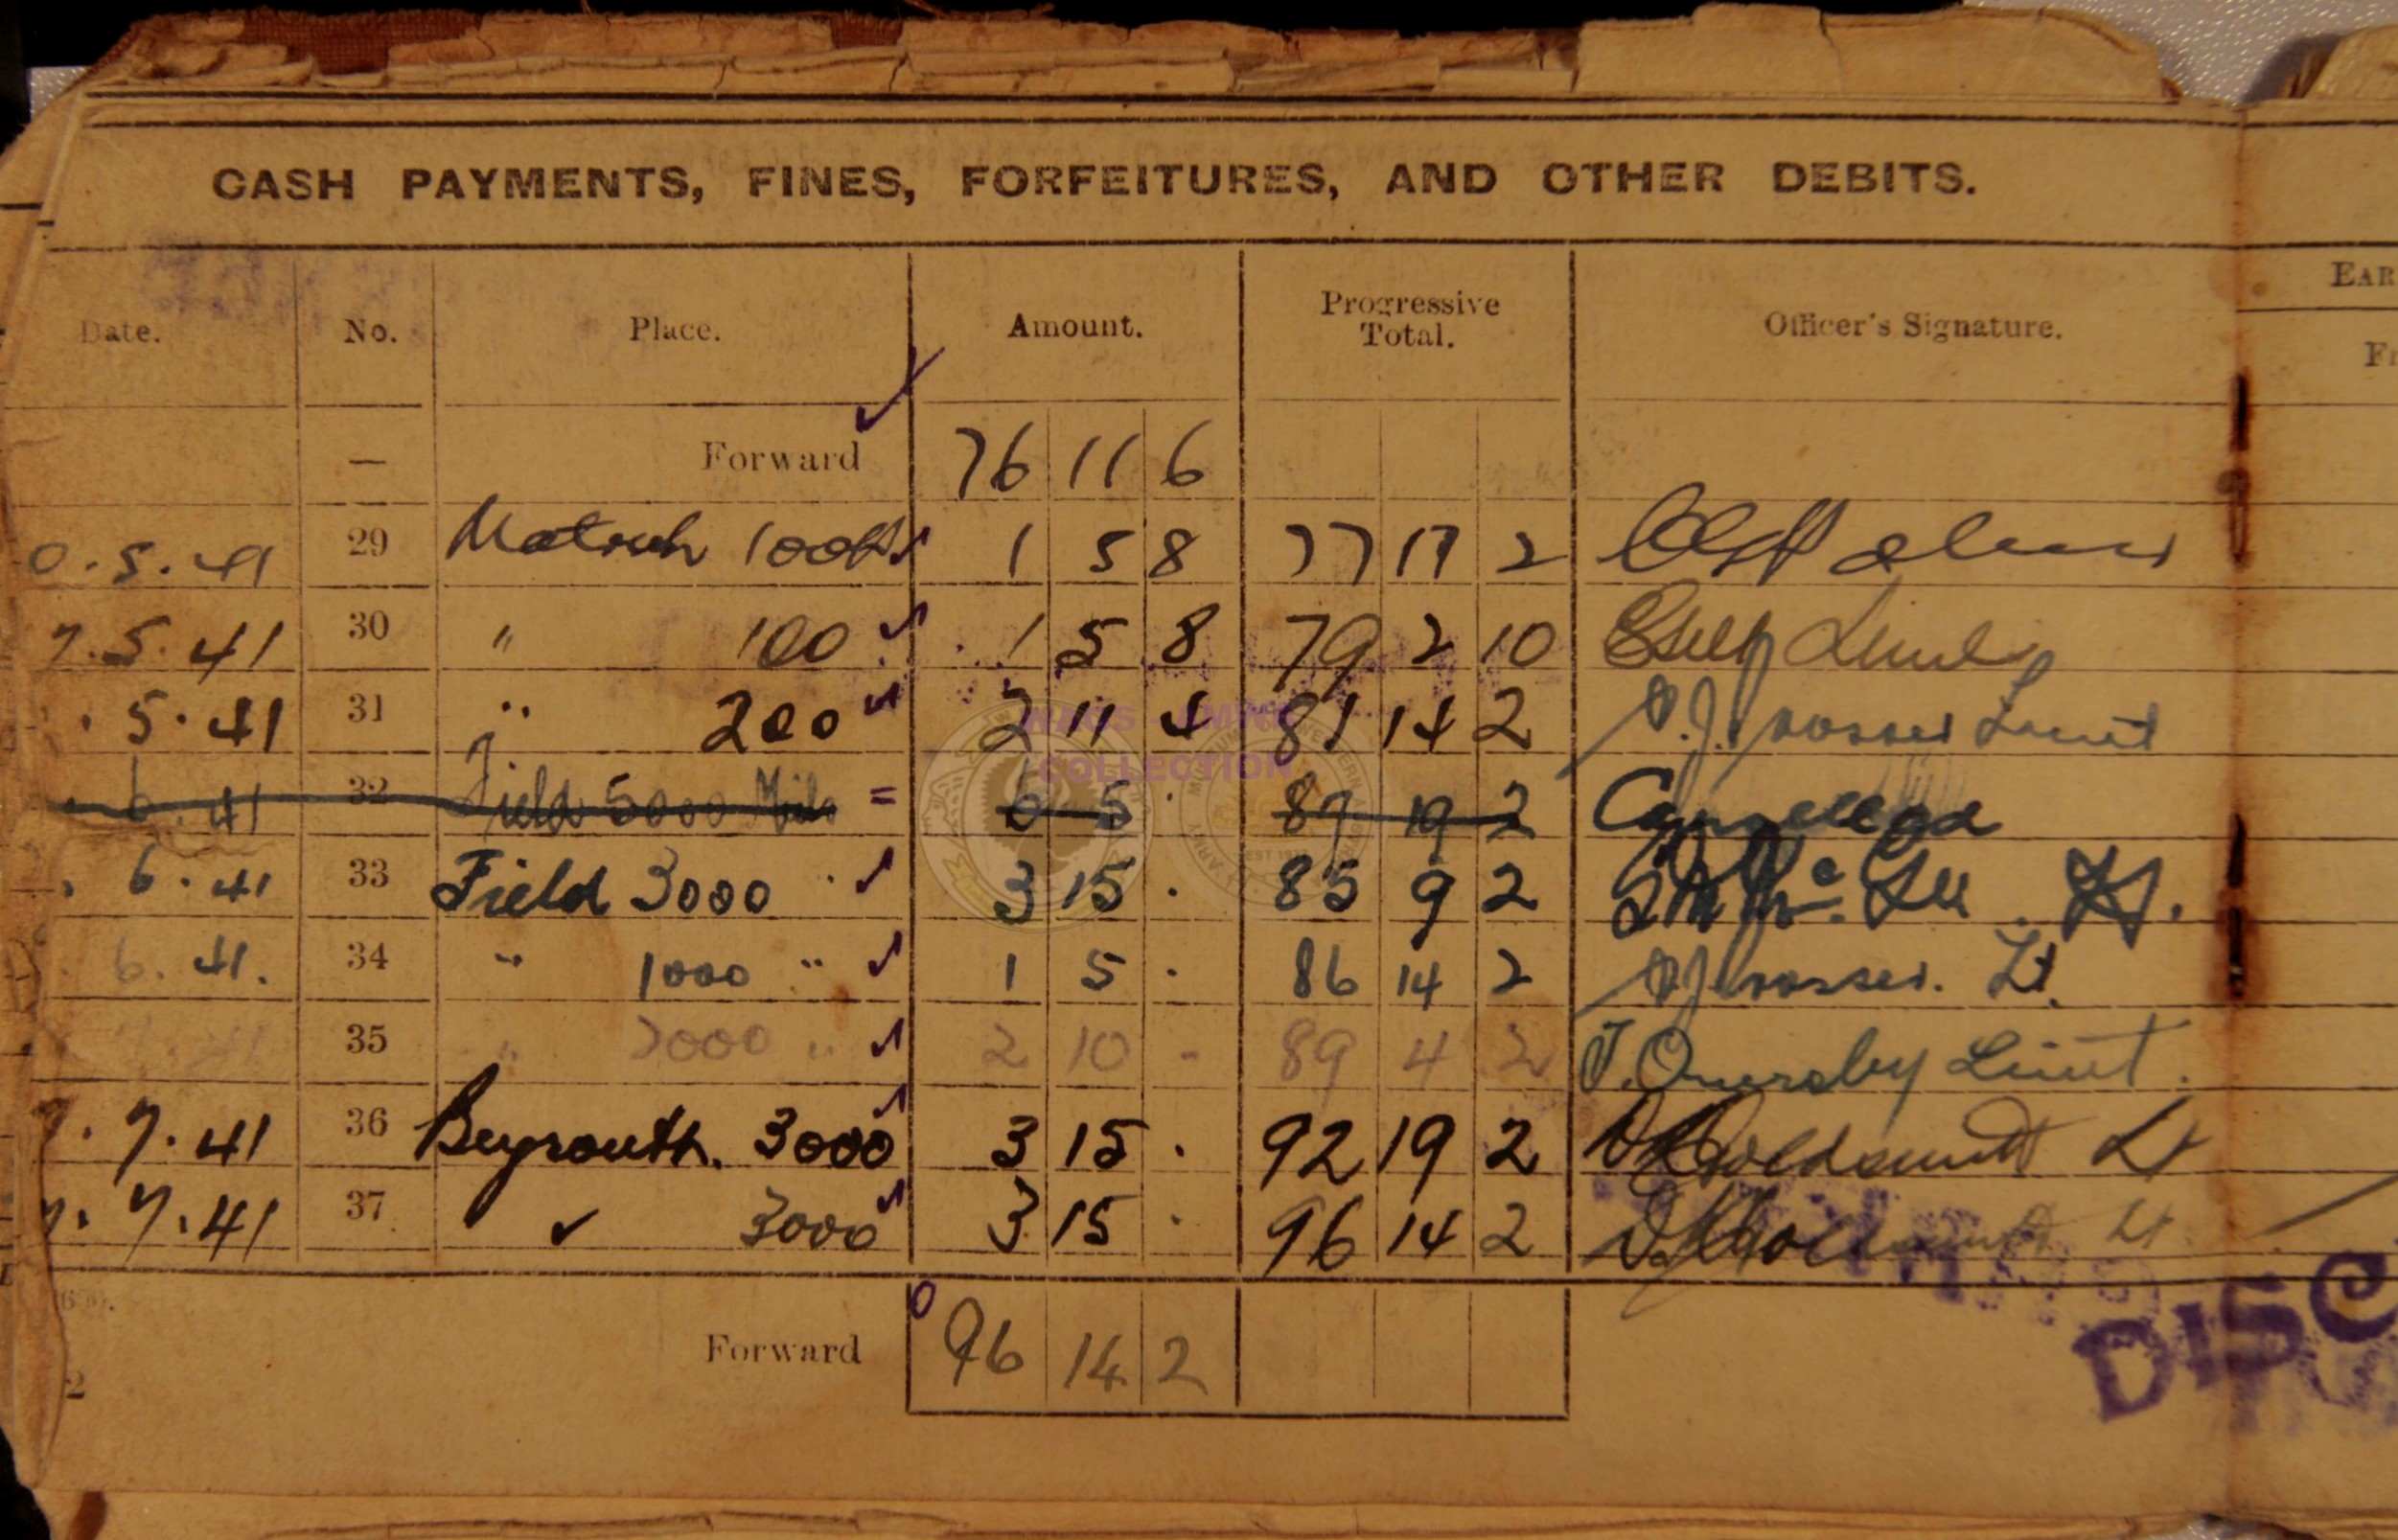 CASH PAYMENTS, FINES, FORFEITURES, AND OTHER DEBITS.
EAR
Date. No. Place. Amount. Progressive Total. Officer's Signature.
— Forward 76 11 6
0.5.41 29 Matruh 100 1 5 8 77 17 2
7.5.41 30 " 100 1 5 8 79 2 10
.5.41 31 " 200 2 11 4 81 14 2 Lieut
6.41 32 Field 5000 Mils = 6 5 . 87 19 2 Cancelled
. 6.41 33 Field 3000 3 15 . 85 9 2
6.41. 34 " 1000 " 1 5 . 86 14 2 Lt.
35 " 2000 " 2 10 - 89 4 2 J. Ormsby Lieut.
7.7.41 36 Beyrouth. 3000 3 15 . 92 19 2 Goldsmith Lt
7.7.41 37 3000 3 15 . 96 14 2 Lt
Forward 96 14 2
2
DISC
COLLECTION